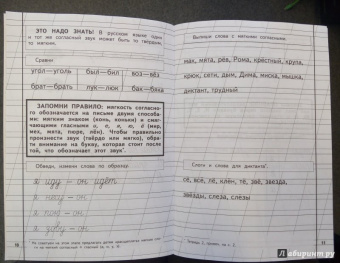 ЭТО НАДО ЗНАТЬ! В русском языке один
и тот же согласный звук может быть то твёрдым,
то мягким.
Сравни
угол—уголь был—бил воз—вёз
брат—брать лук—люк бак—бяка
ЗАПОМНИ ПРАВИЛО: мягкость согласно-
го обозначается на письме двумя способа-
ми: мягким знаком (конь, коньки) и смяг-
чающими гласными и, е, ю, ё, я (мир,
мех, мята, пюре, лён). Чтобы правильно
произнести звук (твёрдо или мягко), обра-
ти внимание на букву, которая стоит после
той, что обозначает этот звук
Обведи, измени слова по образцу.
я иду – он идёт
я несу – он
я пою – он
я зову – он
10
Выпиши слова с мягкими согласными.
мак, мята, рёв, Рома, крёстный, крупа,
крюк, сети, дым, Дима, миска, мышка,
диктант, грудный
Слоги и слова для диктанта
сё, всё, лё, клён, тё, звё, звезда,
звёзды, слеза, слезы
11
Лабиринт.ру